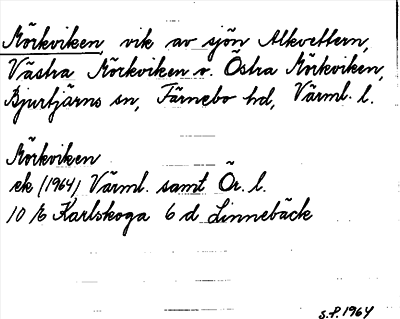 Mörkviken, vik av sjön Alkvettern,
Västra Mörkviken o. Östra Mörkviken,
Bjurtjärns sn, Färnebo hd, Värml. l.
Mörkviken
ek (1964) Värml. samt Ör. l.
10 E Karlskoga 6 d Linnebäck
S.F. 1964